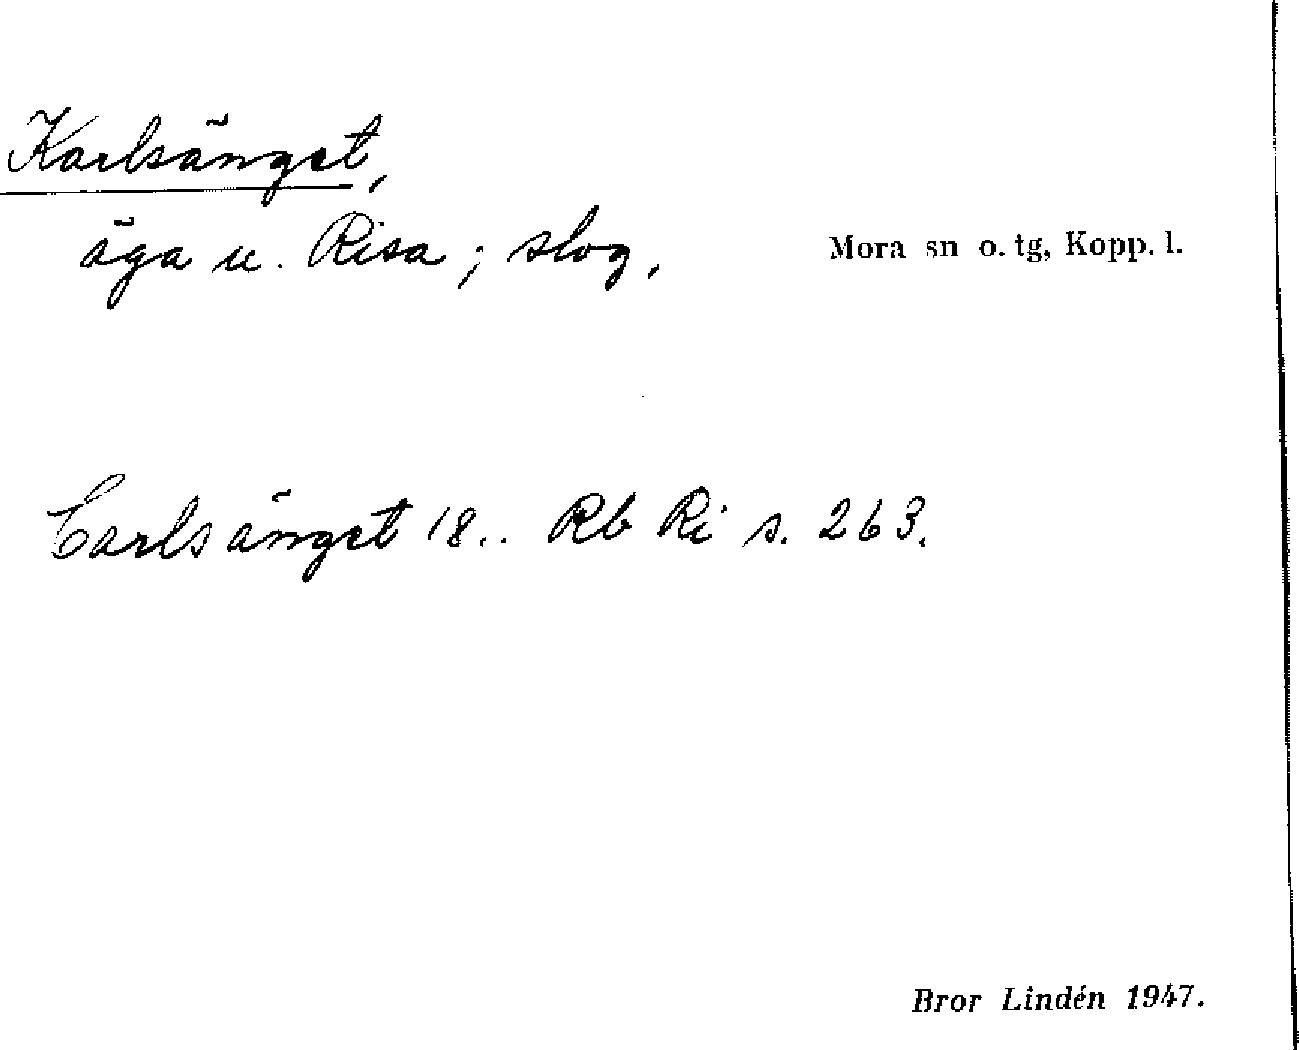 Karlsänget,
äga u. Risa; slog,
Mora sn o. tg, Kopp. l.
Carlsänget 18.. Rb Ri s. 263.
Bror Lindén 1947.